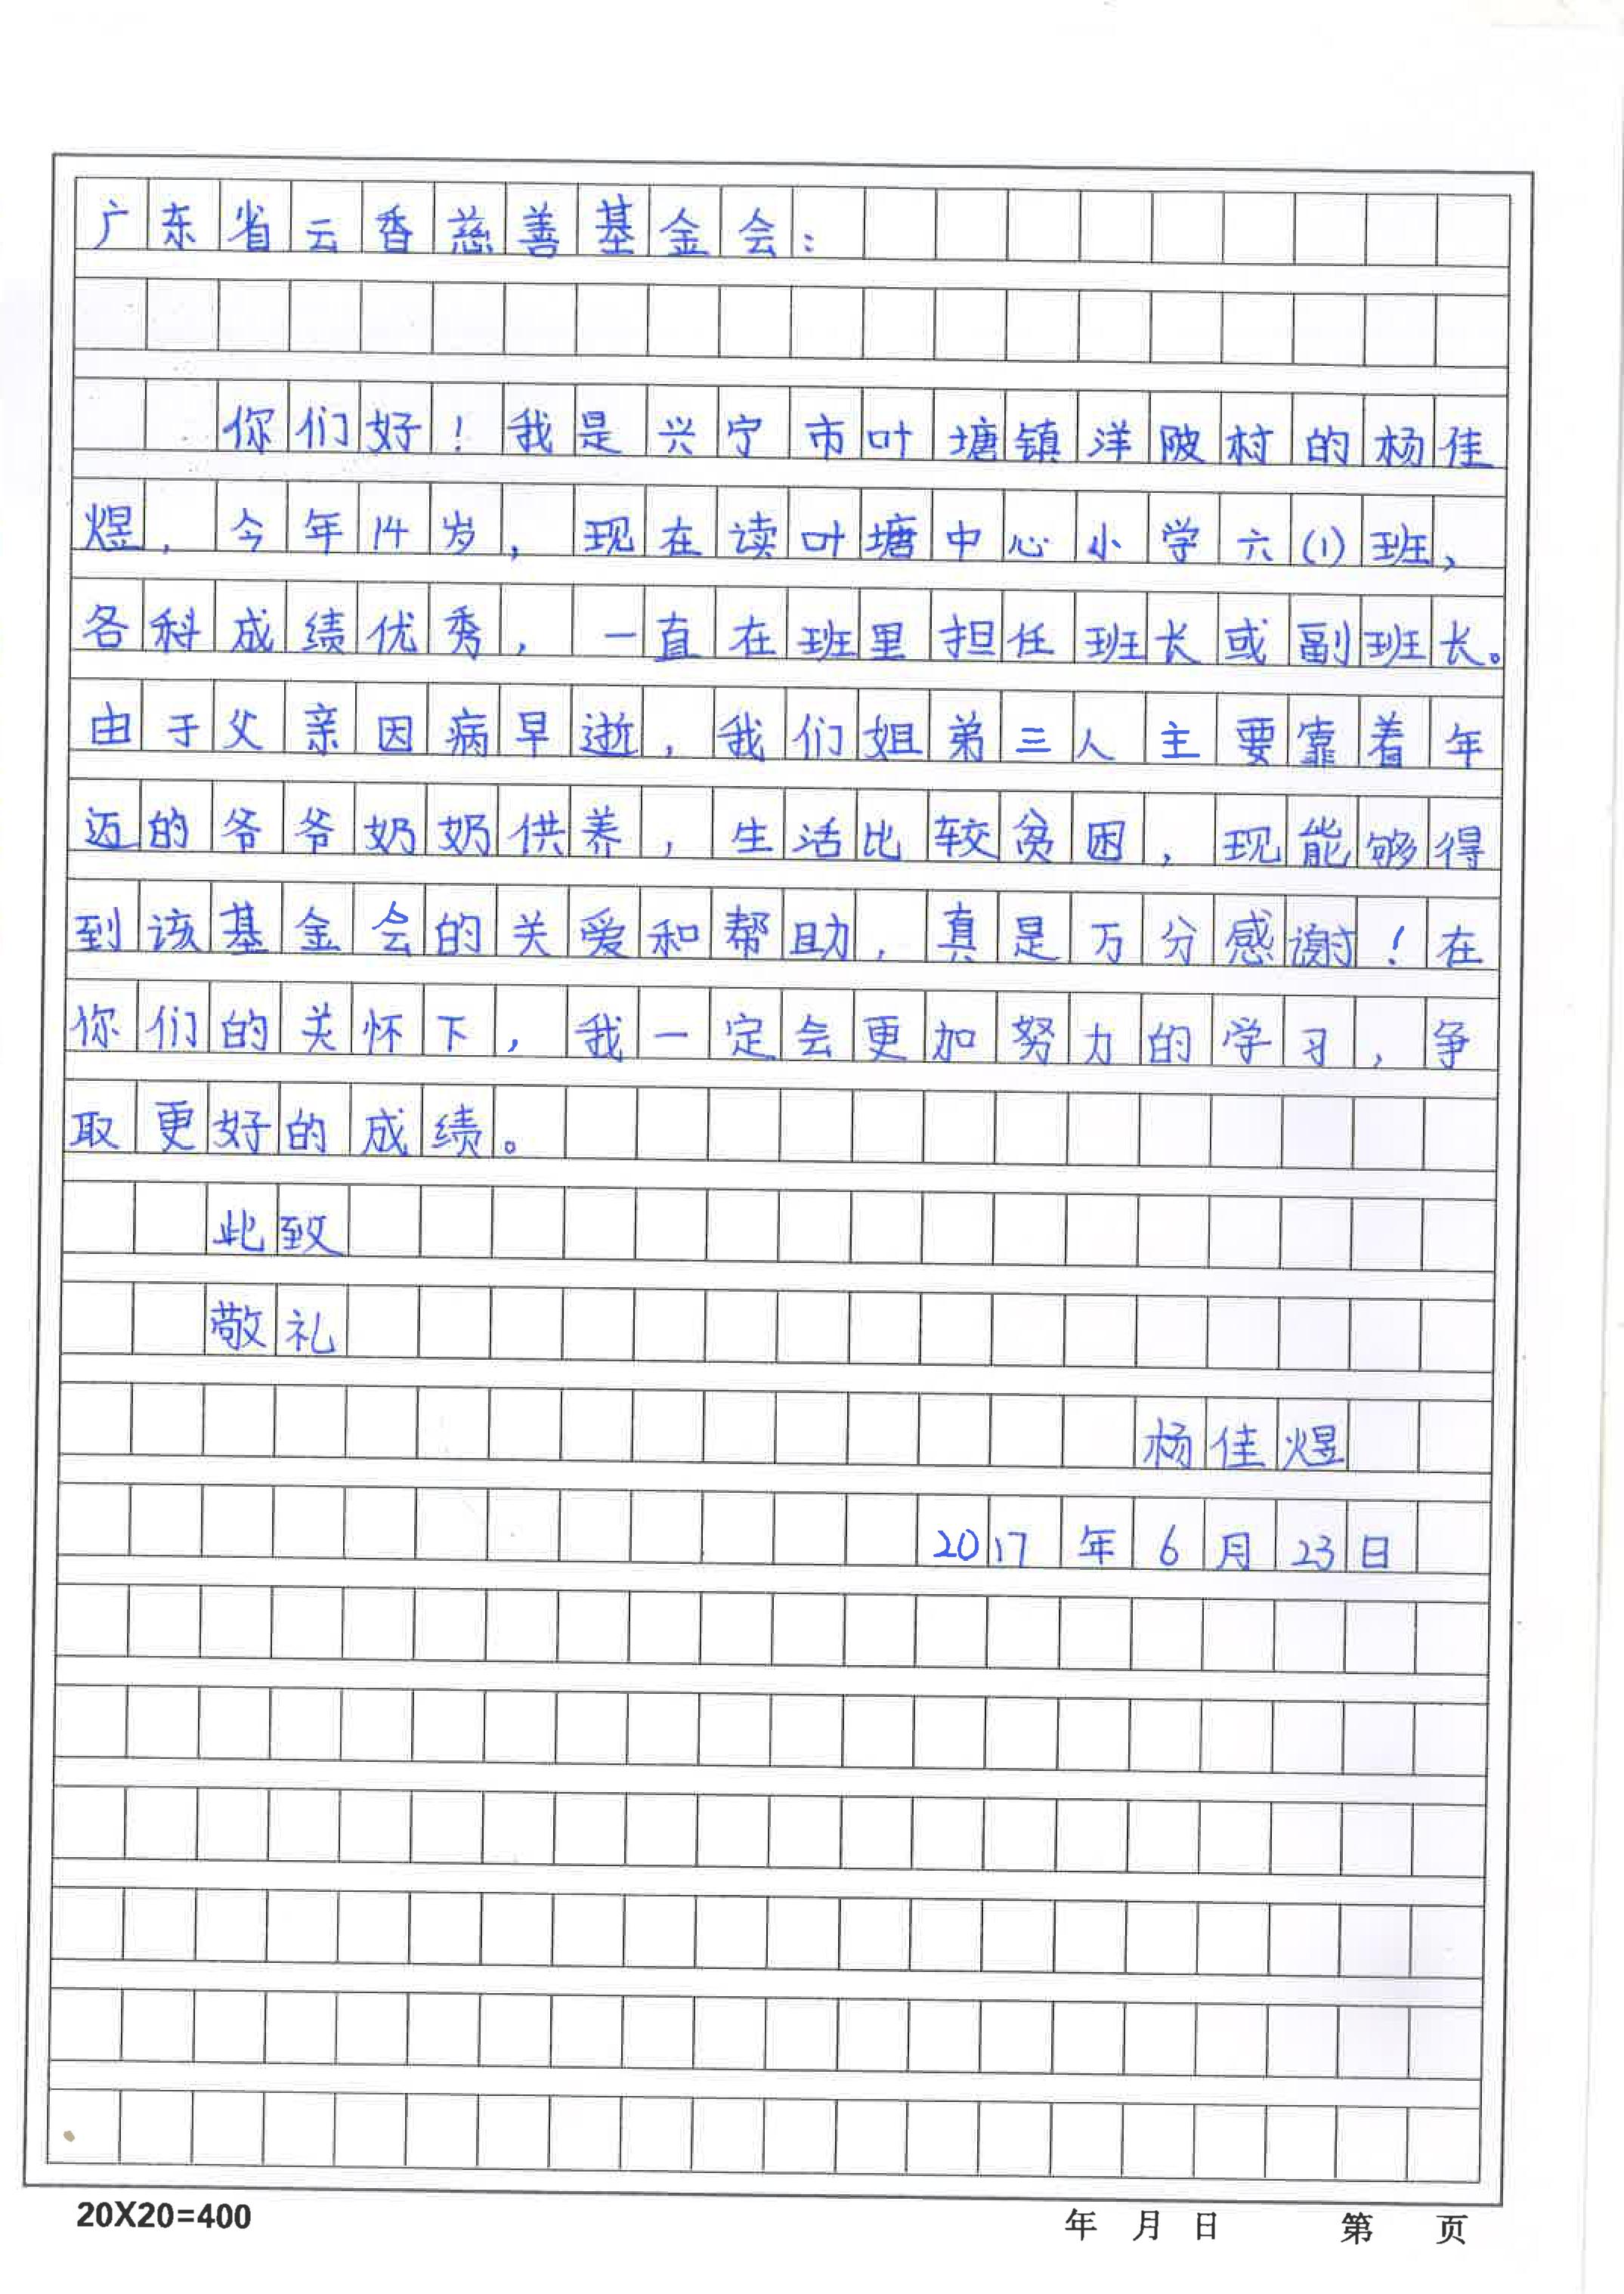 广东省云香慈善基金会：
你们好！我是兴宁市叶塘镇洋陂村的杨佳
煜，今年14岁，现在读叶塘中心小学六(1)班，
各科成绩优秀，一直在班里担任班长或副班长。
由于父亲因病早逝，我们姐弟三人主要靠着年
迈的爷爷奶奶供养，生活比较贫困，现能够得
到该基金会的关爱和帮助，真是万分感谢！在
你们的关怀下，我一定会更加努力的学习，争
取更好的成绩。
此致
敬礼
杨佳煜
2017年6月23日
20X20=400 年 月 日 第 页